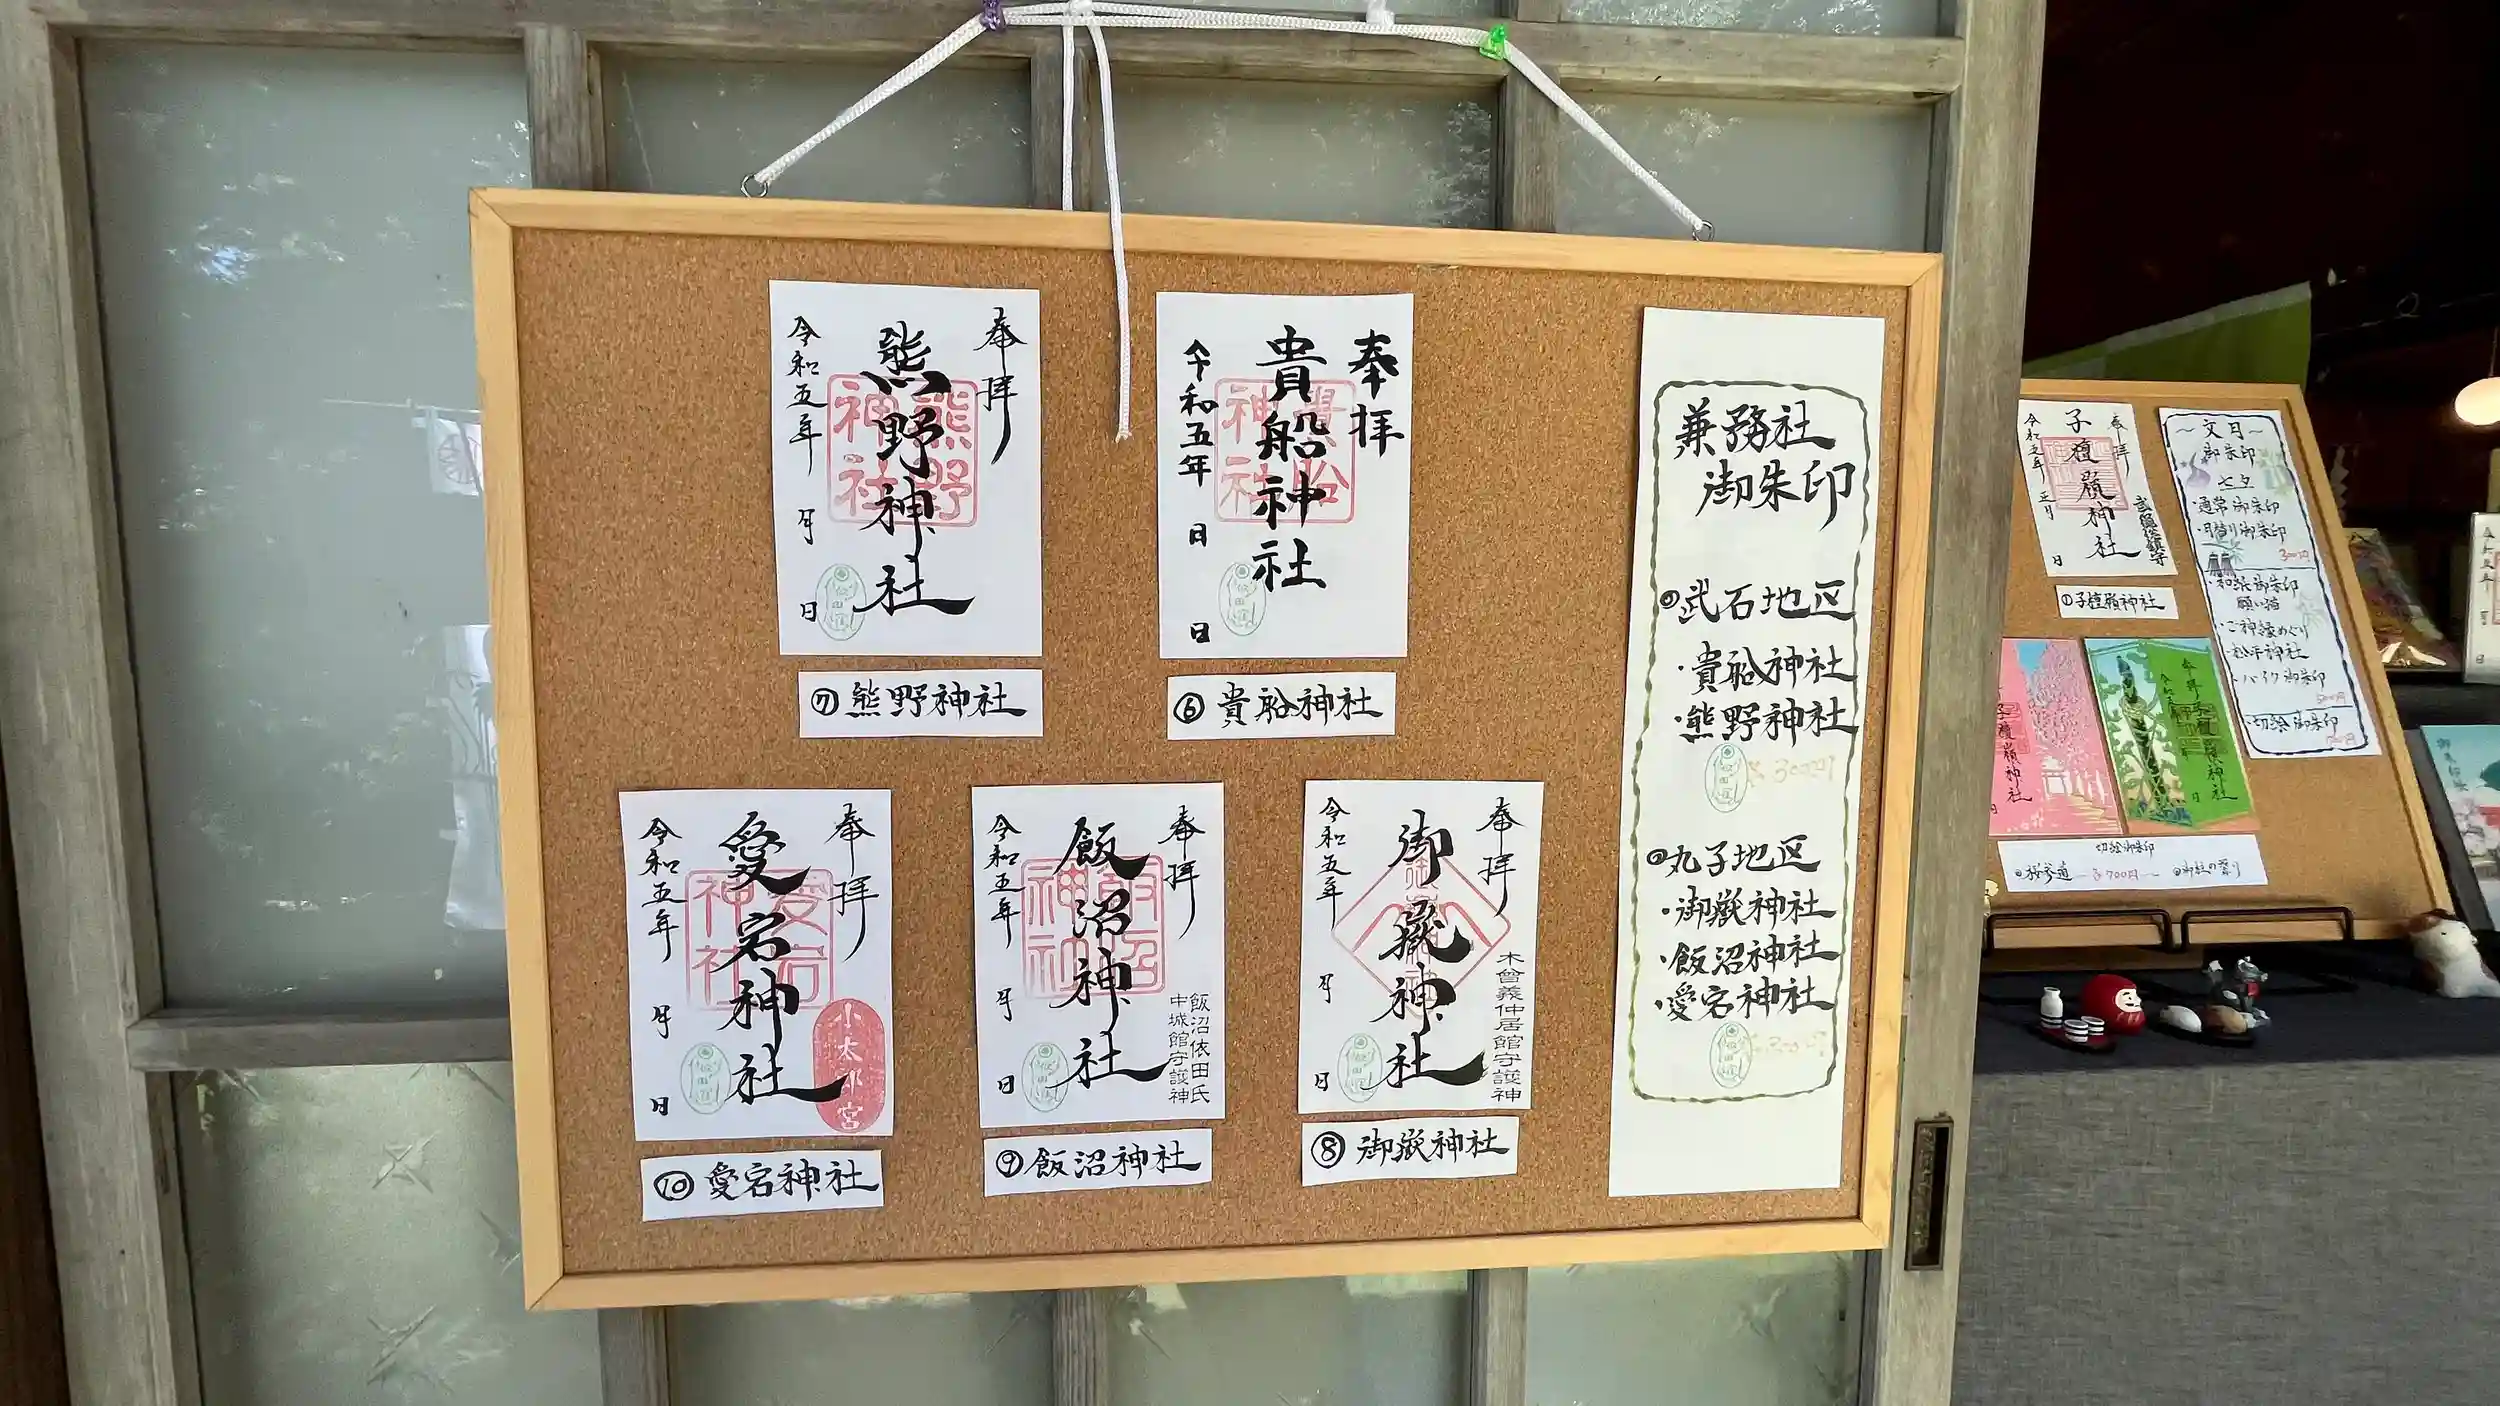 兼務社
御朱印
武石地区
・貴船神社
・熊野神社
300円
丸子地区
・御嶽神社
・飯沼神社
・愛宕神社
奉拝
貴船神社
令和五年
月
日
⑥貴船神社
奉拝
熊野神社
熊野
神社
令和五年
月
日
⑦熊野神社
奉拝
御嶽神社
木曽義仲居館守護神
令和五年
月
日
⑧御嶽神社
奉拝
飯沼神社
飯沼依田氏
中城館守護神
令和五年
月
日
⑨飯沼神社
奉拝
愛宕神社
愛宕
神社
小太郎宮
令和五年
月
日
⑩愛宕神社
〜文月〜
御朱印
七夕
・通常御朱印
・月替り御朱印
300円
・和紙御朱印
願い猫
・ご神縁めぐり
・松平神社
・バイク御朱印
・切絵御朱印
奉拝
子檀嶺神社
令和五年
月
日
①子檀嶺神社
切絵御朱印
700円